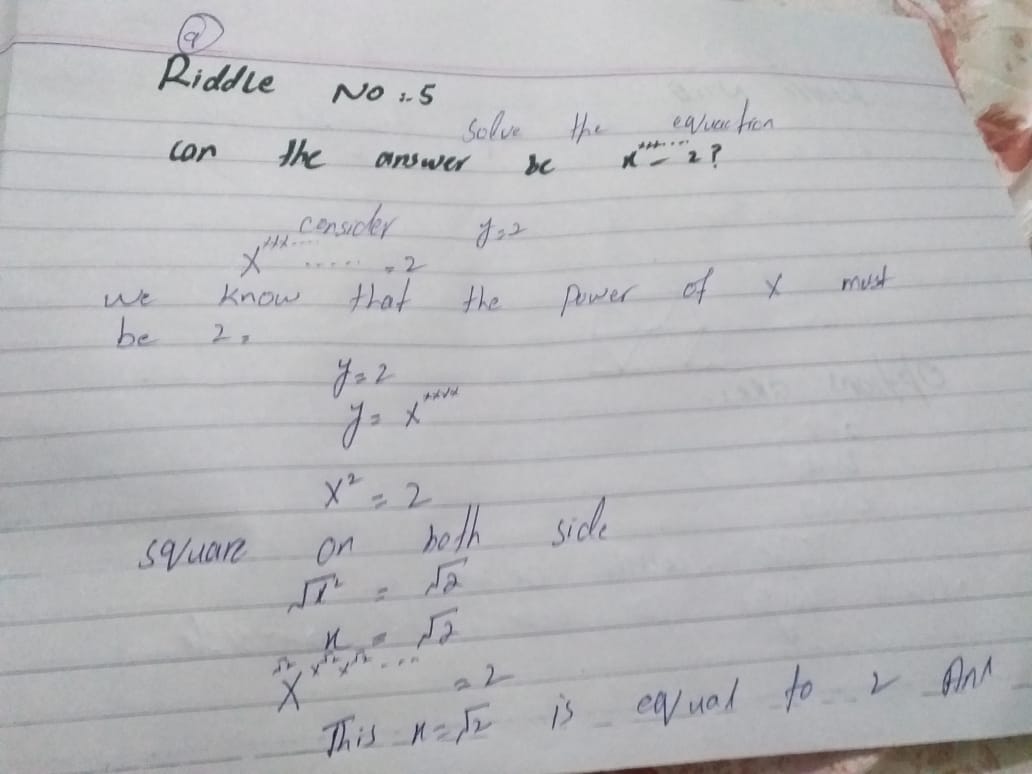 9
Riddle No :- 5
Solve the equaction
can the answer be x^xxx.... = 2?
consider y=2
x^xxx...... = 2
we know that the power of x must
be 2.
y=2
y= x^xxxx
x² = 2
square on both side
√x² = √2
x = √2
= 2
This x=√2 is equal to 2 Ans